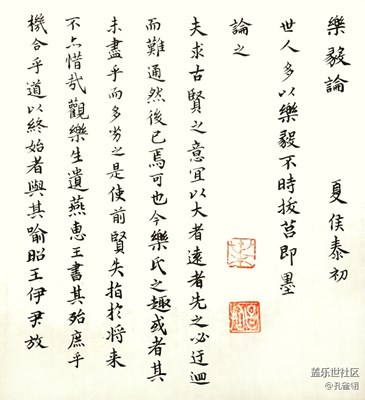 樂毅論 夏侯泰初
世人多以樂毅不時拔莒即墨
論之
夫求古賢之意宜以大者遠者先之必迂迴
而難通然後已焉可也今樂氏之趣或者其
未盡乎而多劣之是使前賢失指於将来
不亦惜哉觀樂生遺燕惠王書其殆庶乎
機合乎道以終始者與其喻昭王伊尹放
盖乐世社区